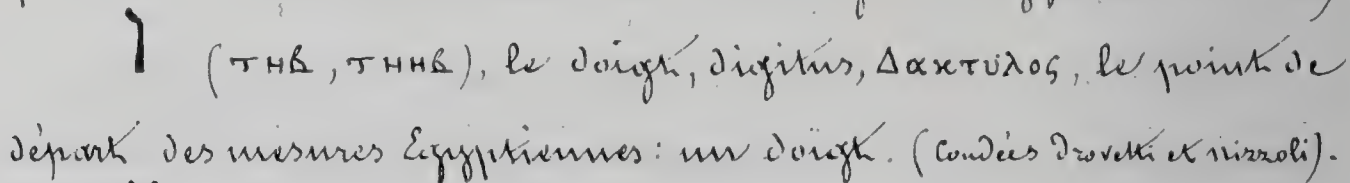 (ⲧⲏⲃ, ⲧⲏⲏⲃ), le doigt, digitus, Δακτυλος, le point de
départ des mesures Egyptiennes: un doigt. (Coudées Drovetti et nizzoli).